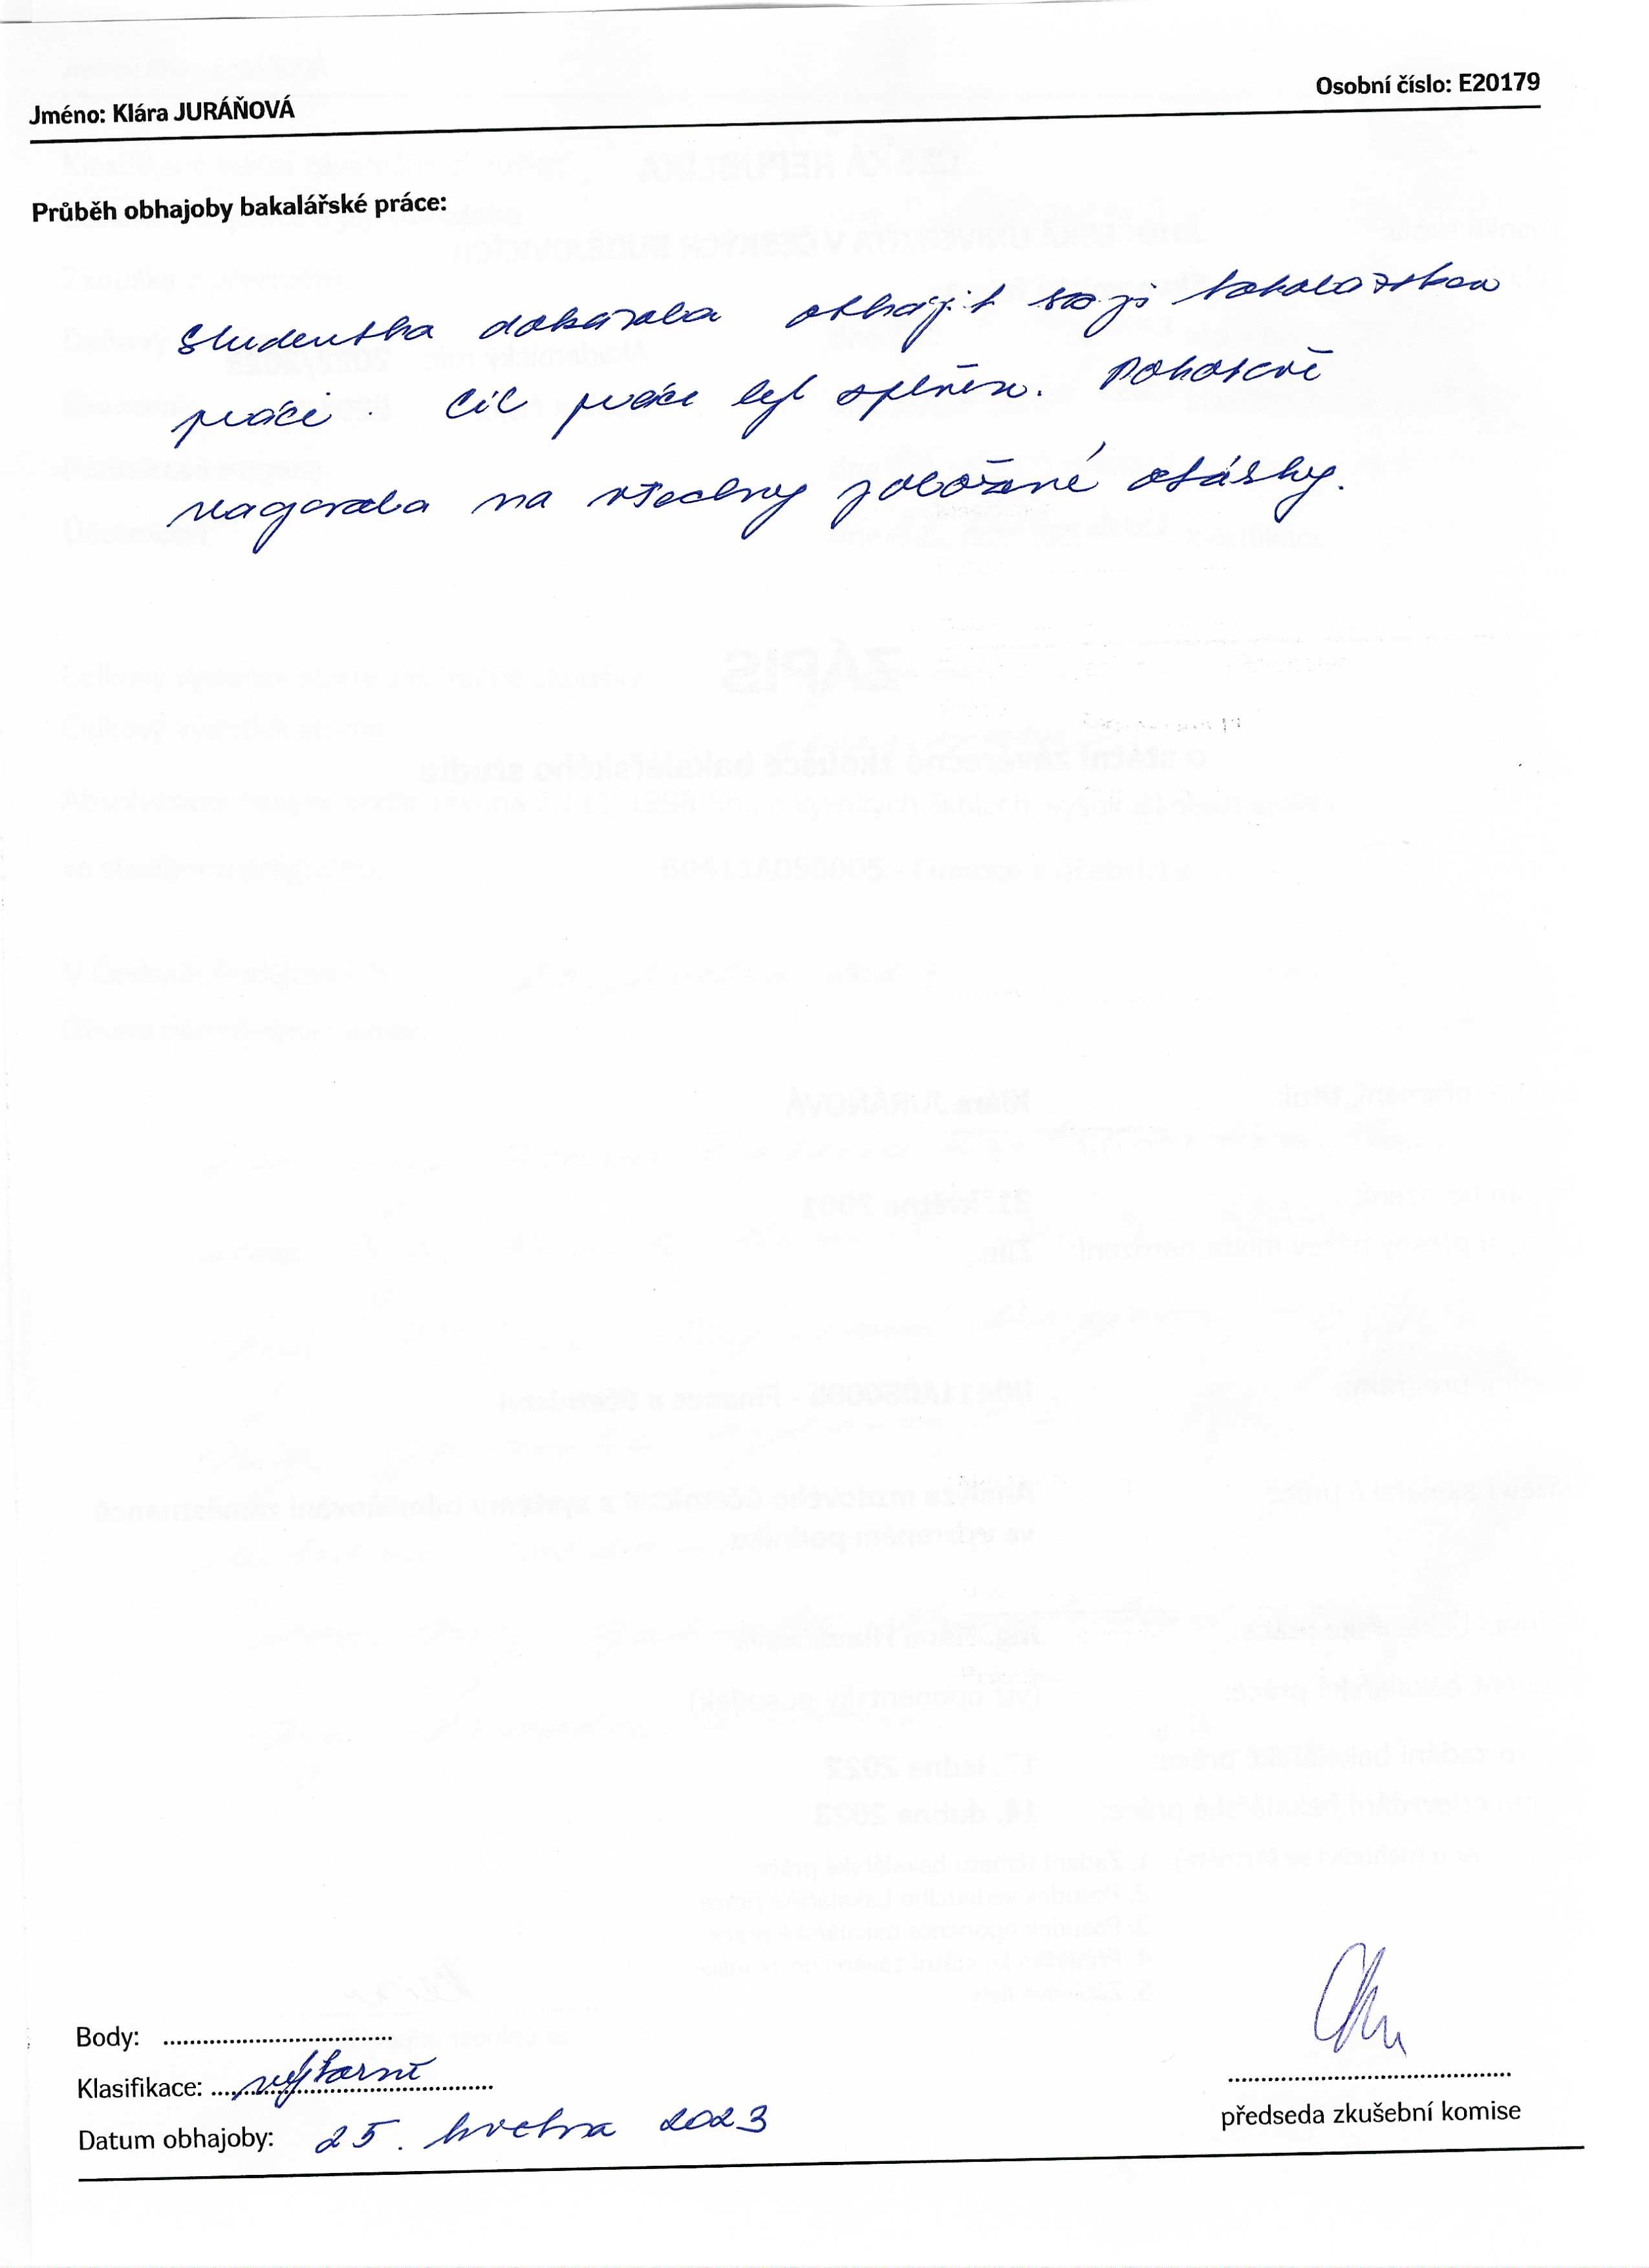 Jméno: Klára JURÁŇOVÁ
Osobní číslo: E20179
Průběh obhajoby bakalářské práce:
Studentka dokázala obhájit svoji bakalářskou
práci. Cíl práce byl splněn. Pohotově
reagovala na všechny položené otázky.
Body:
Klasifikace: výborně
Datum obhajoby: 25. května 2023
předseda zkušební komise